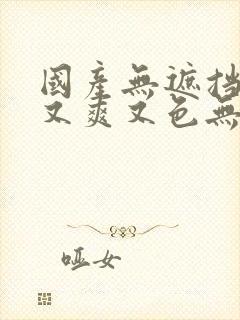 國產無遮挡
又爽又色無
哑女